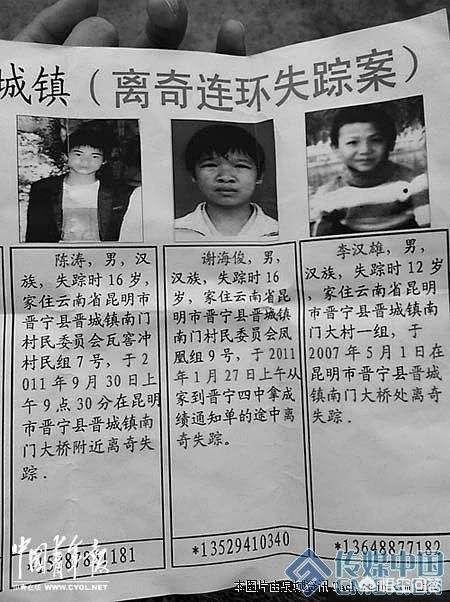 城镇（离奇连环失踪案）
陈涛，男，汉
族，失踪时 16 岁，
家住云南省昆明市
晋宁县晋城镇南门
村民委员会瓦窑冲
村民组 7 号，于 2
011 年 9 月 30 日上
午 9 点 30 分在昆明
市晋宁县晋城镇南
门大桥附近离奇失
踪．
谢海俊，男，
汉族，失踪时 16
岁，家住云南省昆
明市晋宁县晋城镇
南门村民委员会凤
凰组 9 号，于 2011
年 1 月 27 日上午从
家到晋宁四中拿成
绩通知单的途中离
奇失踪。
李汉雄，男，
汉族，失踪时 12 岁
，家住云南省昆明
市晋宁县晋城镇南
门大村一组，于
2007 年 5 月 1 日在
昆明市晋宁县晋城镇
南门大桥处离奇
失踪．
*13529410340
*13648877182
中国青年报
中青在线 WWW.CYOL.NET
传媒中国
悟空问答